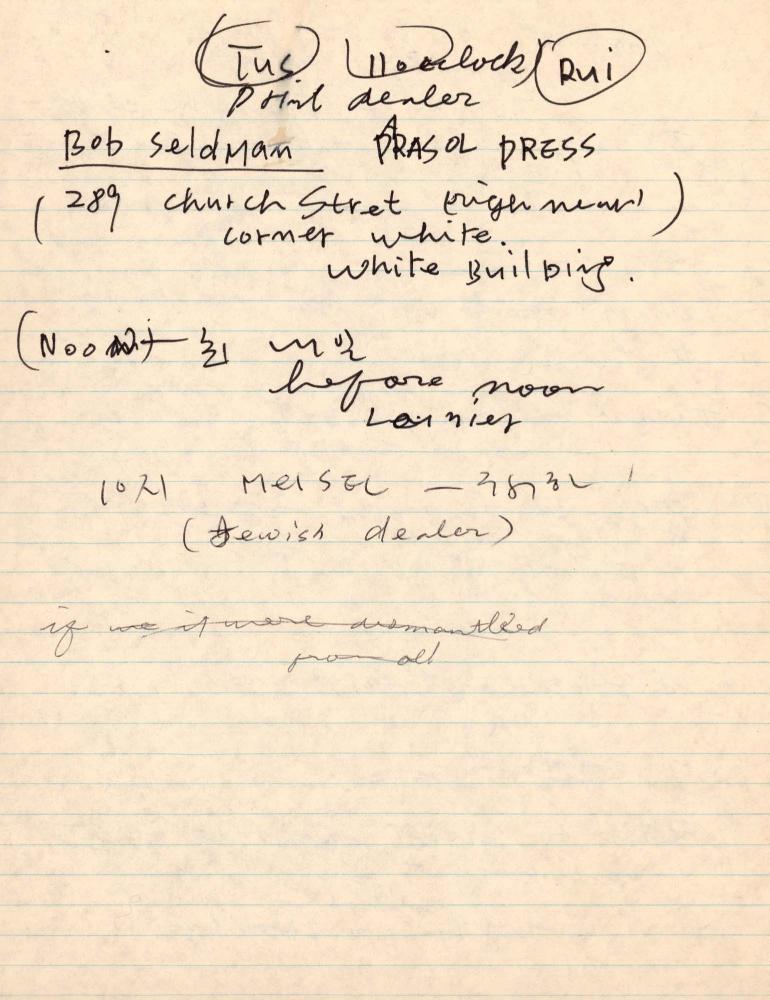 Tus 11 o'clock Rui
Print dealer
Bob seldman PRASOL PRESS
(289 church Stret
corner white.
white Building.
(Noo 내일
before noon
Lanier
10시 MEISEL —
(Jewish dealer)
if we it were dismantled
from all